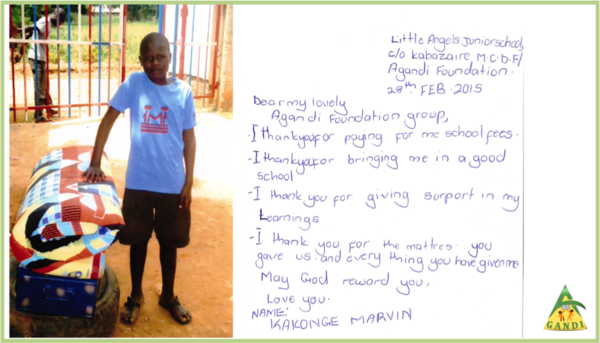 Little Angels Juniorschool,
c/o Kabozaire M.C.D.F/
Agandi Foundation.
28th FEB. 2015
Dear my lovely
Agandi Foundation group,
- I thankyoufor paying for me school fees.
- I thankyoufor bringing me in a good
school
- I thank you for giving surport in my
Learnings
- I thank you for the mattres you
gave us and every thing you have given me
May God reward you.
Love you.
NAME:
KAKONGE MARVIN
AGANDI